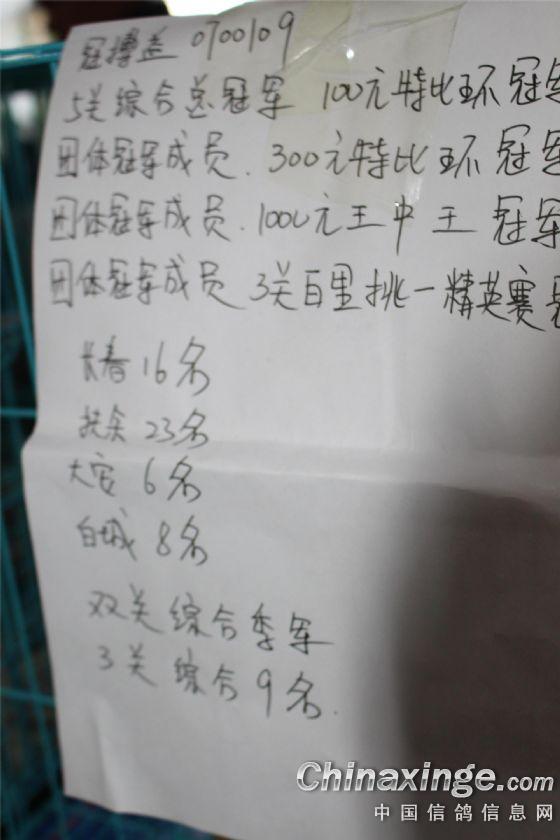 冠搏益 0700109
5关综合总冠军 100元特比环冠军
团体冠军成员. 300元特比环冠军
团体冠军成员. 1000元王中王 冠军
团体冠军成员 3关百里挑一精英赛
长春16名
扶余23名
大安6名
白城8名
双关综合季军
3关综合9名.
Chinaxinge.com
中国信鸽信息网